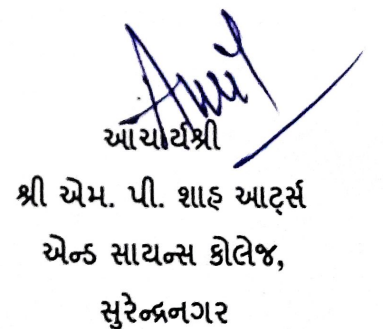 આચાર્યશ્રી
શ્રી એમ. પી. શાહ આર્ટ્સ
એન્ડ સાયન્સ કોલેજ,
સુરેન્દ્રનગર